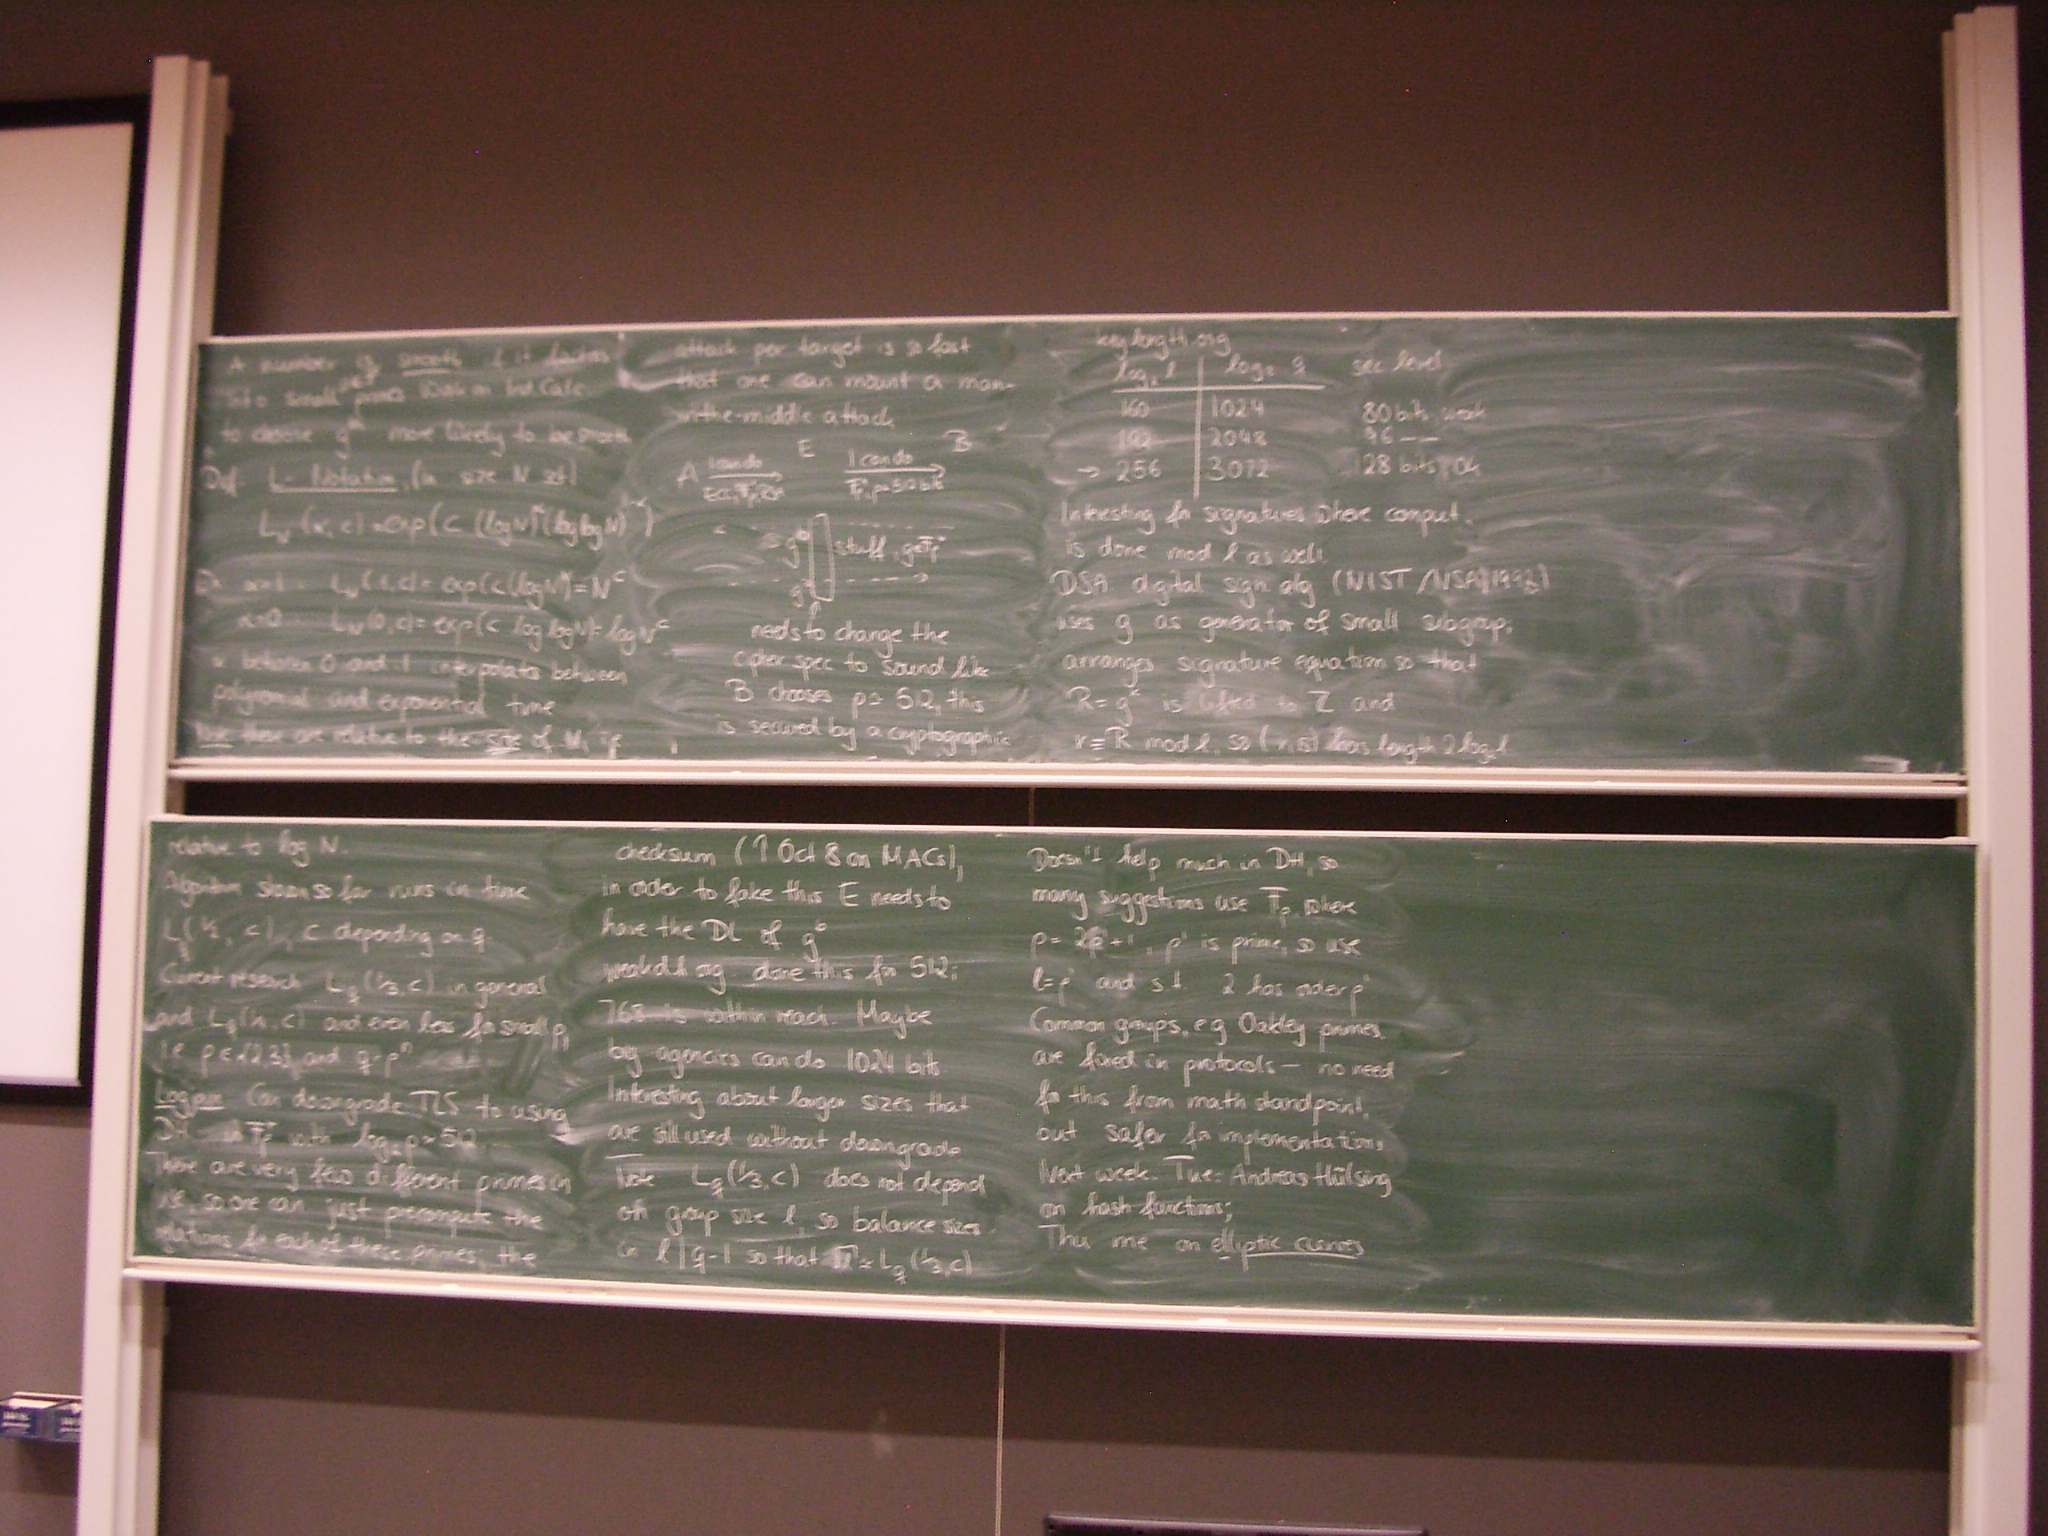 A number is smooth if it factors
into small primes
to choose g more likely to be smooth
Def: L-Notation (in size N
L_N(α, c) = exp(c (log N)^α (log log N)^{1-α})
α=1 L_N(1,c) = exp(c (log N)) = N^c
α=0 L_N(0,c) = exp(c log log N) = log N^c
α between 0 and 1 interpolates between
polynomial and exponential time
Note these are relative to the size of N, if
relative to log N.
Algorithm shown so far runs in time
L_q(1/2, c), c depending on q.
Current research L_q(1/3,c) in general
and and even less for small p,
i.e. p∈{2,3} and q=p^n
Logjam Can downgrade TLS to using
DH in F_p^* with log_2 p ≈ 512
There are very few different primes in
use, so one can just precompute the
relations for each of these primes, the
attack per target is so fast
that one can mount a man-
in-the-middle attack
E B
A I can do I can do
stuff, g∈F_p^*
needs to change the
cipher spec to sound like
B chooses p≈512, this
is secured by a cryptographic
checksum (↑ Oct 8 on MACs),
in order to fake this E needs to
have the DL of g^b
weakdh.org done this for 512;
768 is within reach. Maybe
big agencies can do 1024 bits
Interesting about larger sizes that
are still used without downgrade
Note L_q(1/3,c) does not depend
on group size l, so balance sizes
in l | q-1 so that √l ≈ L_q(1/3,c)
keylength.org
log_2 l log_2 q sec level
160 1024 80 bits, weak
192 2048 96 -"-
→ 256 3072 128 bits, ok
Interesting for signatures where comput.
is done mod l as well.
DSA digital sign alg (NIST/NSA
uses g as generator of small subgrup,
arranges signature equation so that
R = g^k is lifted to Z and
r ≡ R mod l, so (r,s) has length 2 log l.
Doesn't help much in DH, so
many suggestions use F_p, where
p = 2p'+1, p' is prime, so use
l=p' and s.t. 2 has order p'
Common groups, e.g. Oakley primes,
are fixed in protocols – no need
for this from math standpoint,
but safer for implementations
Next week. Tue: Andreas Hülsing
on hash functions;
Thu me on elliptic curves